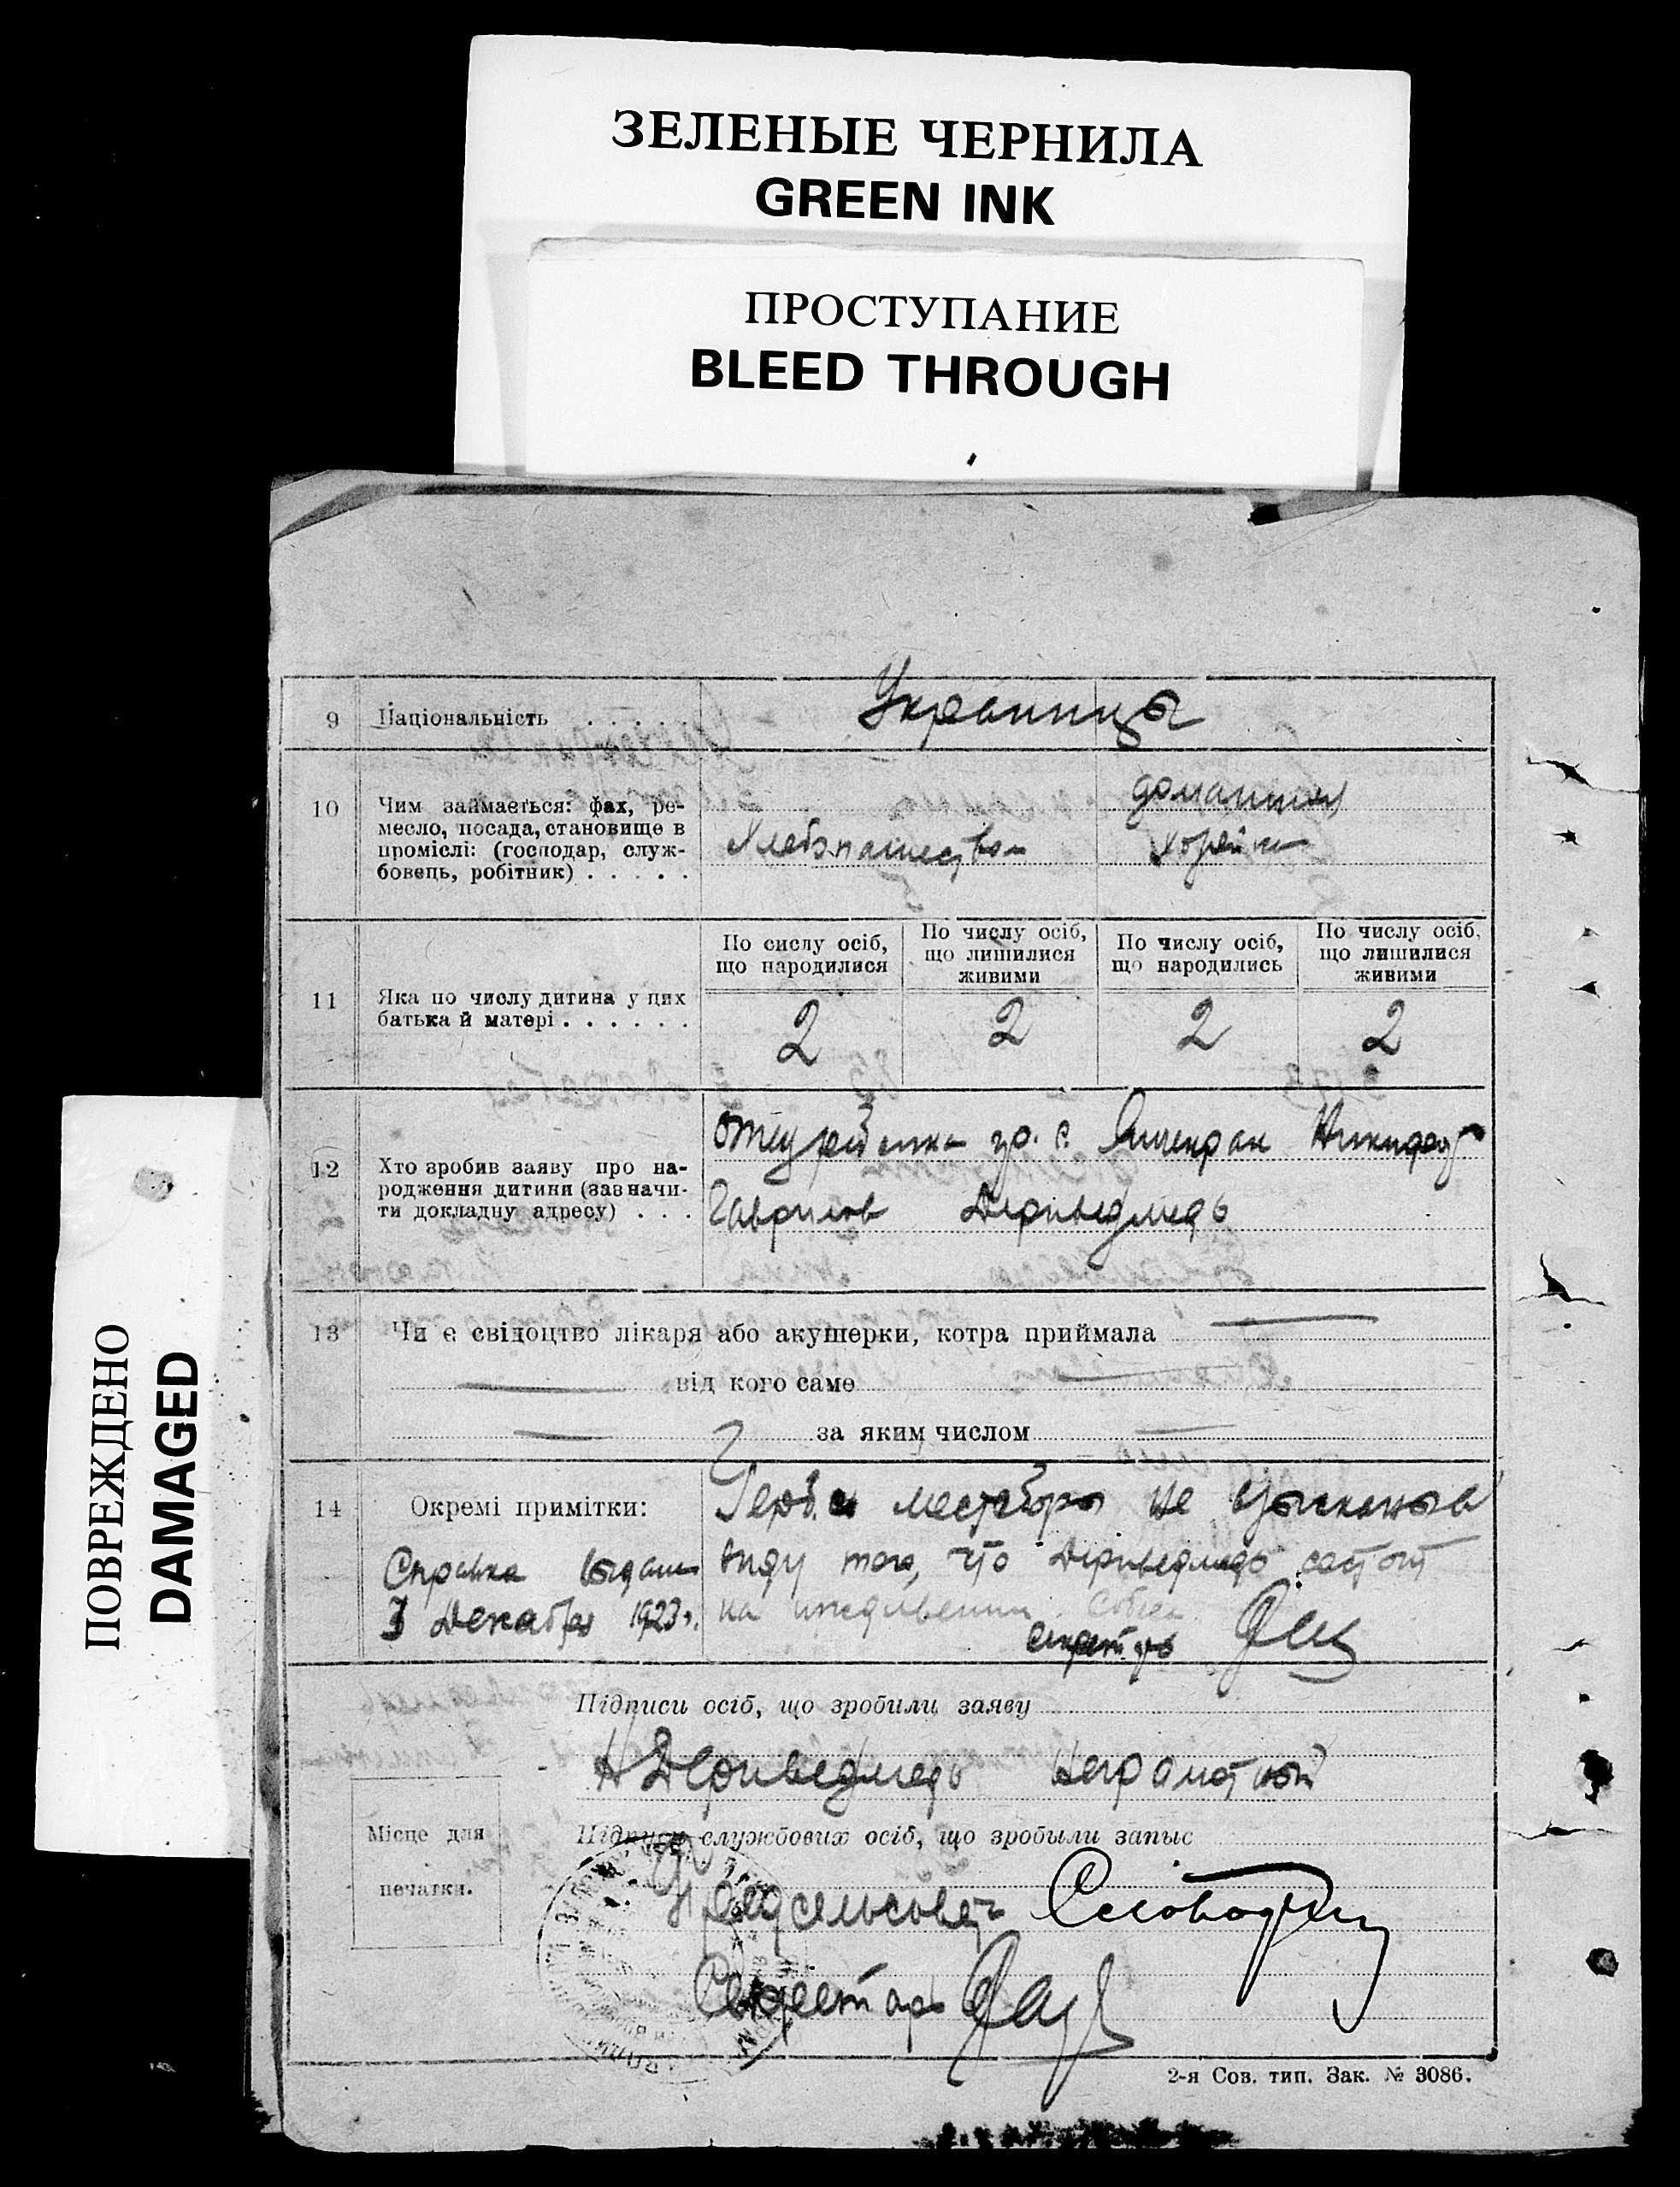 ЗЕЛЕНЫЕ ЧЕРНИЛА
GREEN INK
ПРОСТУПАНИЕ
BLEED THROUGH
ПОВРЕЖДЕНО
DAMAGED
9 Національність . . . . . Украинцы
10 Чим займається: фах, ре-
месло, посада, становище в
проміслі: (господар, служ-
бовець, робітник) . . . . .
Хлебопашеством
домашнем
11 Яка по числу дитина у цих
батька й матері . . . . . .
По сислу осіб,
що народилися
По числу осіб,
що лишилися
живими
По числу осіб,
що народились
По числу осіб,
що лишилися
живими
2 2 2 2
12 Хто зробив заяву про на-
родження дитини (зазначи-
ти докладну адресу) . . .
Отец ребенка гр. с. Никифор
Гаврилов Дериведмедь
13 Чи є свідоцтво лікаря або акушерки, котра приймала
від кого саме
за яким числом
14 Окремі примітки:
Справка выдана
3 Декабря 1923 г.
Герб. и местсборы не взысканы в
виду того, что Дериведмедь состоит
на иждивении
секретарь
Підписи осіб, що зробили заяву
Н Дериведмедь неграмотный
Місце для
печатки.
Підписи службових осіб, що зробыли запыс
Предсельсовета
Секретарь
2-я Сов. тип. Зак. № 3086.